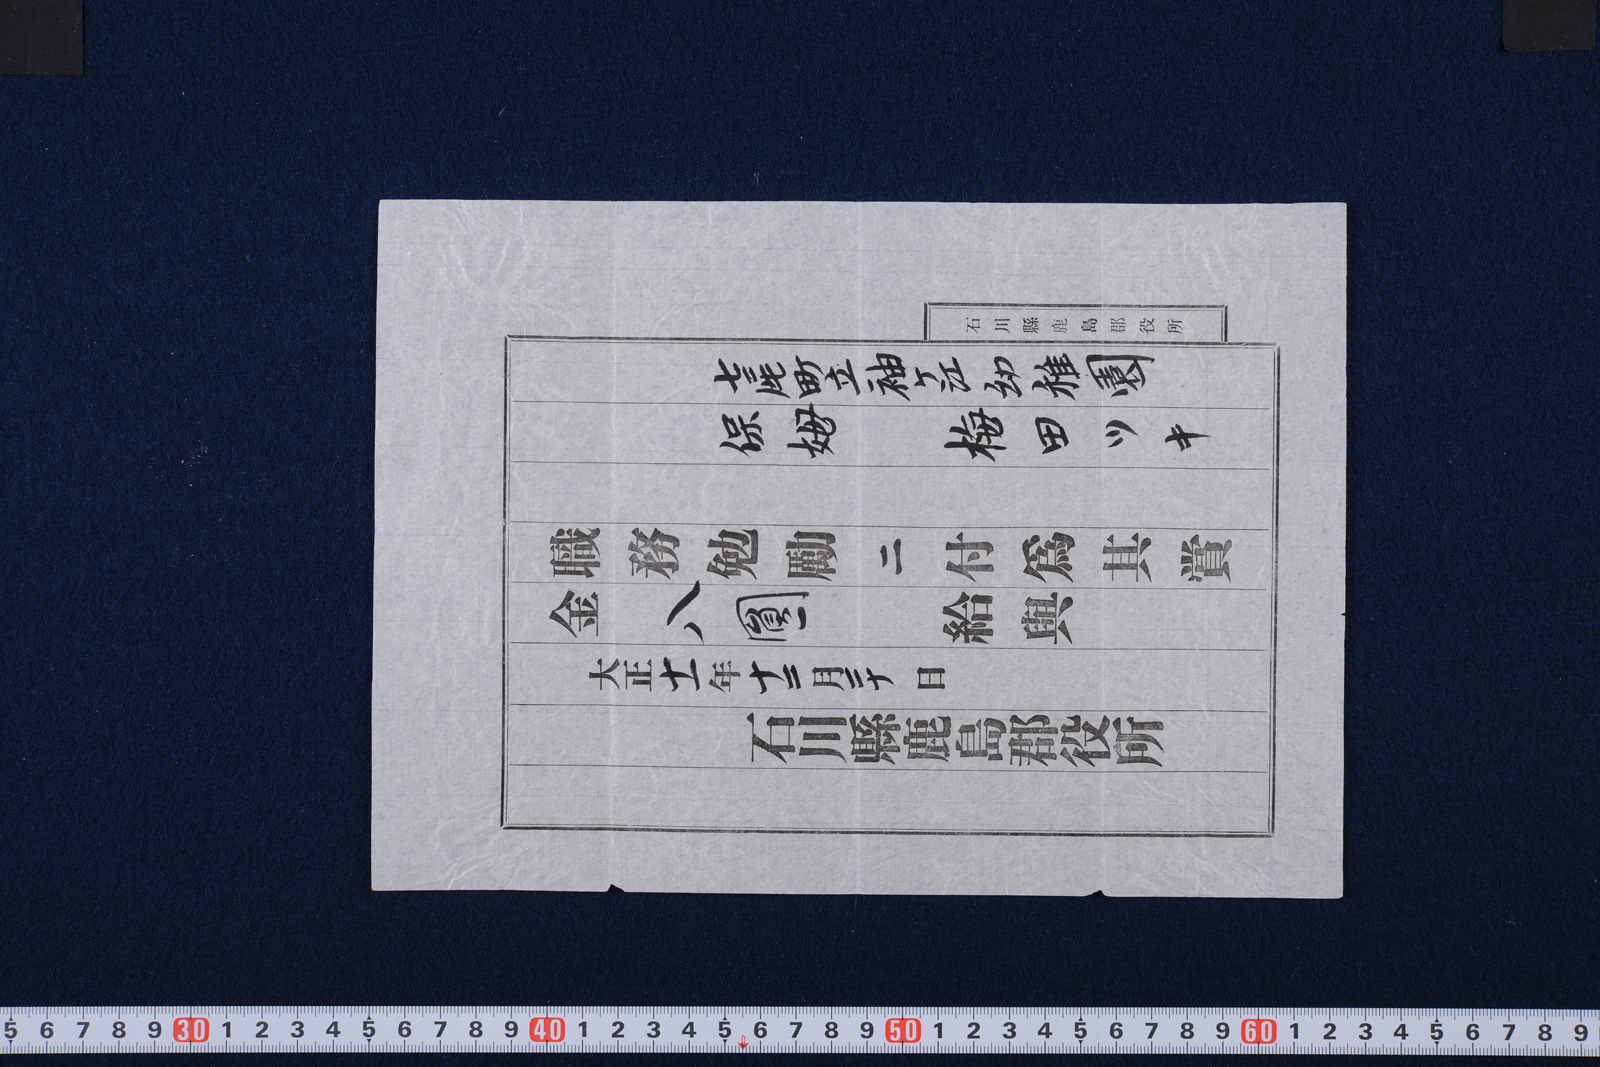 石川縣鹿島郡役所
七尾町立袖ケ江幼稚園
保姆 梅田ツキ
職務勉勵ニ付爲其賞
金八圓給與
大正十一年十二月二十日
石川縣鹿島郡役所
5 6 7 8 9 30 1 2 3 4 5 6 7 8 9 40 1 2 3 4 5 6 7 8 9 50 1 2 3 4 5 6 7 8 9 60 1 2 3 4 5 6 7 8 9